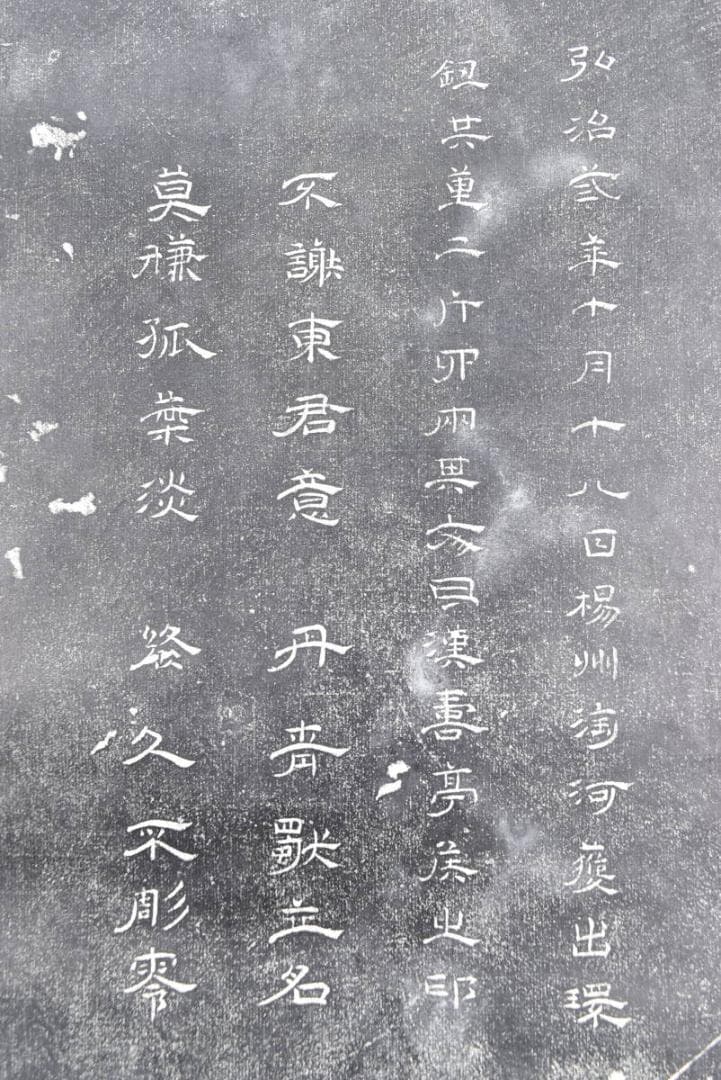 弘治叁年十月十八日楊州淘河獲出環
鈕共重二斤四兩其文曰漢壽亭侯之印
不謝東君意 丹青獨立名
莫嫌孤葉淡 終久不彫零